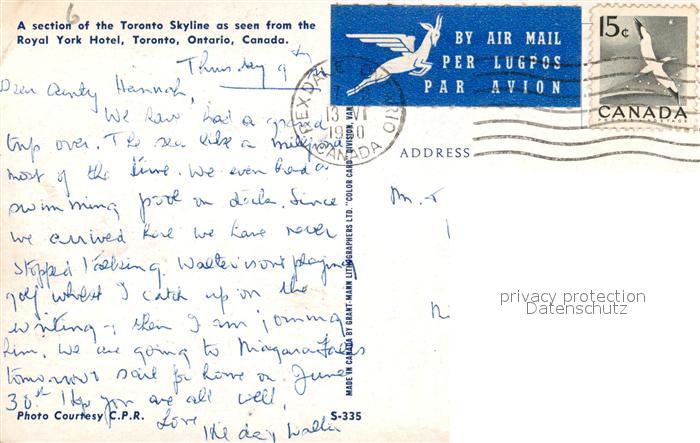 6
A section of the Toronto Skyline as seen from the
Royal York Hotel, Toronto, Ontario, Canada.
Thursday 9th
Dear Aunty Hannah,
We have had a grand
trip over. The sea like a millpond
most of the time. We even had a
swimming pool on deck. Since
we arrived here we have never
stopped talking. Walter is out playing
golf whilst I catch up on the
writing & then I am joining
him. We are going to Niagara Falls
tomorrow sail for home on June
30th Hope you are all well,
Love
Walter
Photo Courtesy C.P.R.
S-335
MADE IN CANADA BY GRANT-MANN LITHOGRAPHERS LTD. "COLOR CARD" DIVISION, VAN
BY AIR MAIL
PER LUGPOS
PAR AVION
REXDALE ONTARIO
13 VI
1960
CANADA
15¢
CANADA
ADDRESS
privacy protection
Datenschutz